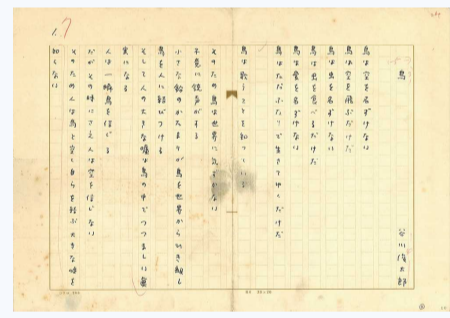 鳥
谷川俊太郎
鳥は空を名づけない
鳥は空を飛ぶだけだ
鳥は虫を名づけない
鳥は虫を食べるだけだ
鳥は愛を名づけない
鳥はただふたりで生きてゆくだけだ
鳥は歌うことを知っている
そのため鳥は世界に気づかない
不意に銃声がする
小さな鉛のかたまりが鳥を世界から引き離し
鳥を人に結びつける
そして人の大きな嘘は鳥の中でつつましい真
実になる
人は一瞬鳥を信じる
だがその時にさえ人は空を信じない
そのため人は鳥と空と自らを結ぶ大きな嘘を
知らない